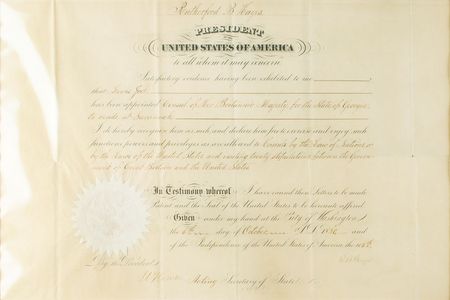 Rutherford B. Hayes
PRESIDENT
OF THE
UNITED STATES OF AMERICA
to all whom it may concern
Satisfactory evidence having been exhibited to me
that
has been appointed Consul of Her Britannic Majesty, for the State of Georgia,
to reside at Savannah
I do hereby recognize him as such and declare him free to exercise and enjoy such
functions, powers and privileges as are allowed to Consuls by the Law of Nations or
by the Laws of the United States and existing Treaty stipulations between the Govern
ment of Great Britain and the United States
In Testimony whereof I have caused these Letters to be made
Patent and the Seal of the United States to be hereunto affixed
Given under my hand at the City of Washington
the day of October A.D. 1880 and
of the Independence of the United States of America, the 105th
By the President
Acting Secretary of State